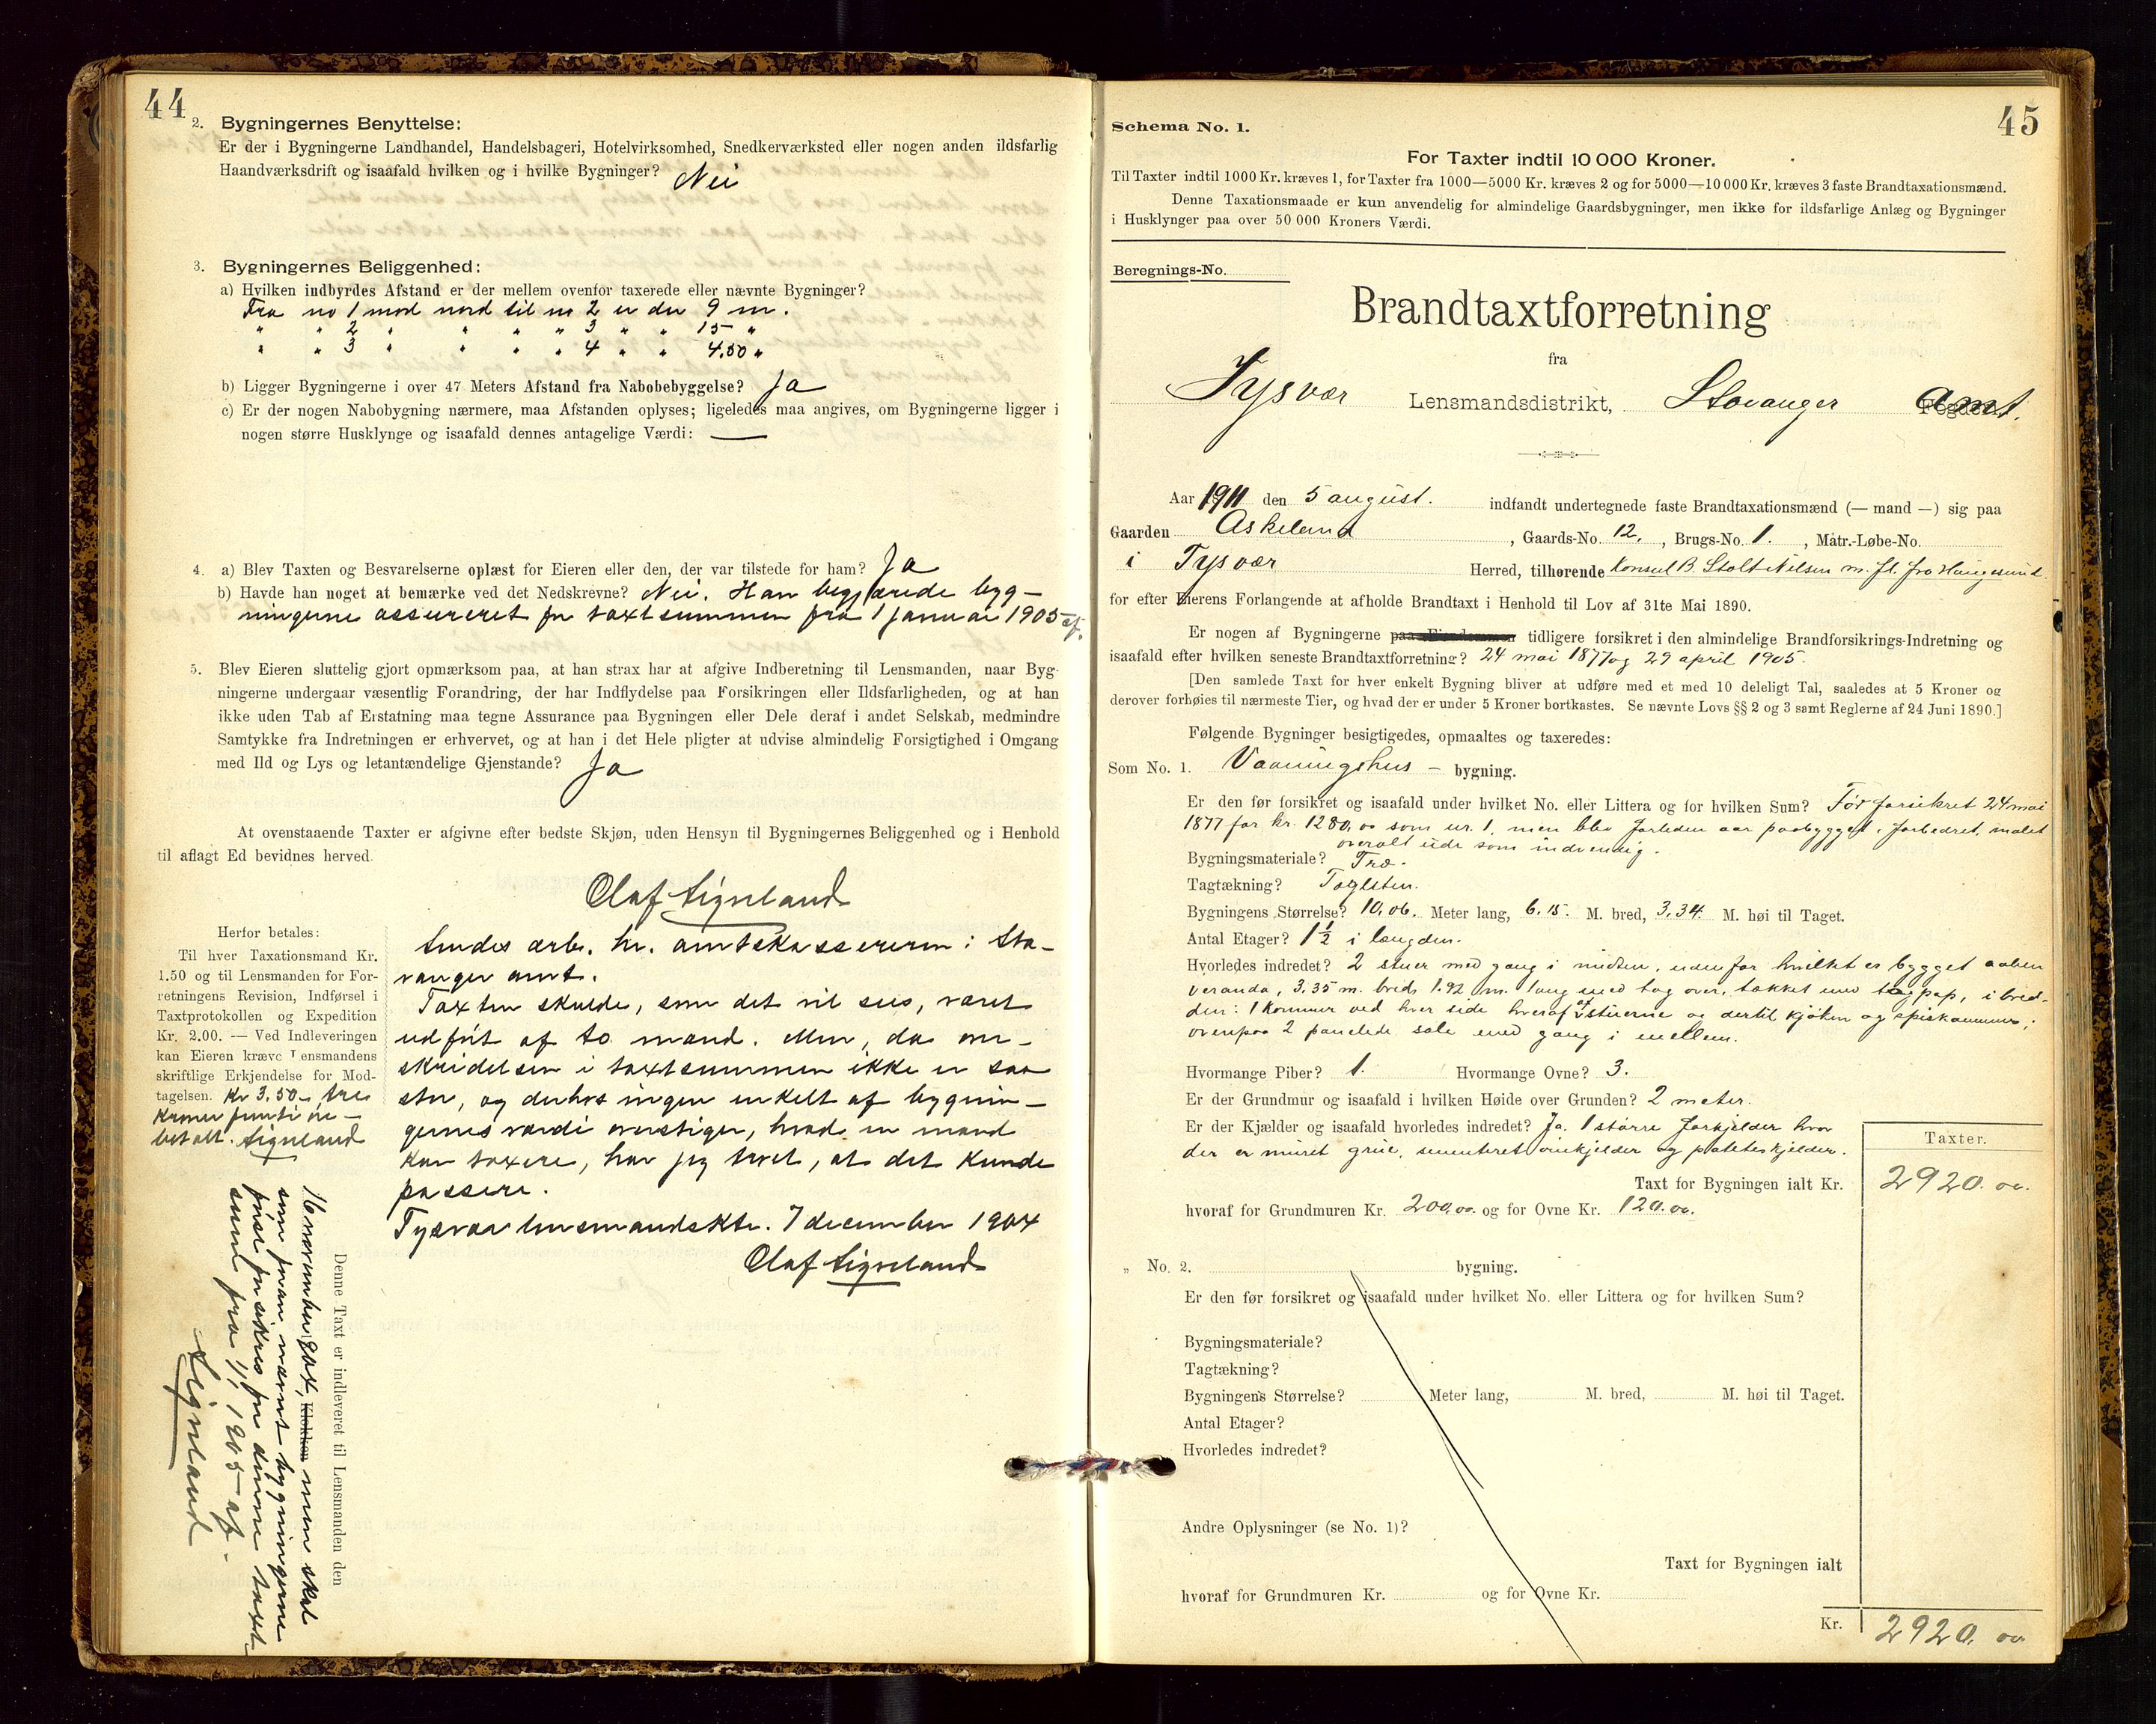 44
2. Bygningernes Benyttelse:
Er der i Bygningerne Landhandel, Handelsbageri, Hotelvirksomhed, Snedkerværksted eller nogen anden ildsfarlig
Haandværksdrift og isaafald hvilken og i hvilke Bygninger? Nei
3. Bygningernes Beliggenhed:
a) Hvilken indbyrdes Afstand er der mellem ovenfor taxerede eller nævnte Bygninger?
Fra no 1 mod nord til no 2 er der 9 m.
" " 2 " " " " 3 " " 15 "
" " 3 " " " " 4 " " 4.50 "
b) Ligger Bygningerne i over 47 Meters Afstand fra Nabobebyggelse? Ja
c) Er der nogen Nabobygning nærmere, maa Afstanden oplyses; ligeledes maa angives, om Bygningerne ligger i
nogen større Husklynge og isaafald dennes antagelige Værdi: —
4. a) Blev Taxten og Besvarelserne oplæst for Eieren eller den, der var tilstede for ham? Ja
b) Havde han noget at bemærke ved det Nedskrevne? Nei. Han begjærede byg-
ningerne assureret for taxtsummen fra 1 januar 1905 af.
5. Blev Eieren sluttelig gjort opmærksom paa, at han strax har at afgive Indberetning til Lensmanden, naar Byg-
ningerne undergaar væsentlig Forandring, der har Indflydelse paa Forsikringen eller Ildsfarligheden, og at han
ikke uden Tab af Erstatning maa tegne Assurance paa Bygningen eller Dele deraf i andet Selskab, medmindre
Samtykke fra Indretningen er erhvervet, og at han i det Hele pligter at udvise almindelig Forsigtighed i Omgang
med Ild og Lys og letantændelige Gjenstande? Ja
At ovenstaaende Taxter er afgivne efter bedste Skjøn, uden Hensyn til Bygningernes Beliggenhed og i Henhold
til aflagt Ed bevidnes herved.
Olaf Sigveland
Herfor betales:
Til hver Taxationsmand Kr.
1.50 og til Lensmanden for For-
retningens Revision, Indførsel i
Taxtprotokollen og Expedition
Kr. 2.00. — Ved Indleveringen
kan Eieren kræve Lensmandens
skriftlige Erkjendelse for Mod-
tagelsen. Kr 3.50 - tre
kroner femti øre -
betalt. Sigveland
Sendes ærb. hr. amtskassereren i Sta-
vanger amt.
Taxten skulde, som det vil sees, været
udført af to mænd. Men, da over-
skridelsen i taxtsummen ikke er saa
stor, og derhos ingen enkelt af bygnin-
gernes værdi overstiger, hvad en mand
kan taxere, har jeg troet, at det kunde
passere.
Tysvær lensmandsktr. 7 december 1904
Olaf Sigveland
Denne Taxt er indleveret til Lensmanden den
16 november 1904, Klokken men skal
som foran nævnt bygningerne
først forsikres for denne taxt-
sum fra 1/1 1905 af.
Sigveland
45
Schema No. 1.
For Taxter indtil 10 000 Kroner.
Til Taxter indtil 1000 Kr. kræves 1, for Taxter fra 1000—5000 Kr. kræves 2 og for 5000—10 000 Kr. kræves 3 faste Brandtaxationsmænd.
Denne Taxationsmaade er kun anvendelig for almindelige Gaardsbygninger, men ikke for ildsfarlige Anlæg og Bygninger
i Husklynger paa over 50 000 Kroners Værdi.
Beregnings-No.
Brandtaxtforretning
fra
Tysvær Lensmandsdistrikt, Stavanger Amt.
Aar 1911 den 5 august. indfandt undertegnede faste Brandtaxationsmænd (— mand —) sig paa
Gaarden Askeland, Gaards-No. 12, Brugs-No. 1., Matr.-Løbe-No.
i Tysvær Herred, tilhørende Konsul B. Stolt-Nilsen m. fl. fra Haugesund
for efter Eierens Forlangende at afholde Brandtaxt i Henhold til Lov af 31te Mai 1890.
Er nogen af Bygningerne paa Eiendommen tidligere forsikret i den almindelige Brandforsikrings-Indretning og
isaafald efter hvilken seneste Brandtaxtforretning? 24 mai 1877 og 29 april 1905.
[Den samlede Taxt for hver enkelt Bygning bliver at udføre med et med 10 deleligt Tal, saaledes at 5 Kroner og
derover forhøies til nærmeste Tier, og hvad der er under 5 Kroner bortkastes. Se nævnte Lovs §§ 2 og 3 samt Reglerne af 24 Juni 1890.]
Følgende Bygninger besigtigedes, opmaaltes og taxeredes:
Som No. 1. Vaaningshus - bygning.
Er den før forsikret og isaafald under hvilket No. eller Littera og for hvilken Sum? Før forsikret 24 mai
1877 for kr. 1280,00 som nr. 1, men blev forleden aar paabygget, forbedret, malet
overalt ude som indvendig.
Bygningsmateriale? Træ.
Tagtækning? Taglsten.
Bygningens Størrelse? 10.06. Meter lang, 6.15. M. bred, 3.34. M. høi til Taget.
Antal Etager? 1½ i længden.
Hvorledes indredet? 2 stuer med gang i midten, udenfor hvilket er bygget aaben
veranda, 3.35 m. bred 1.92 m. lang med tag over, tækket med tagpap, i bred-
den: 1 kammer ved hver side hveraf stuerne og dertil kjøken og spiskammer;
ovenpaa 2 panelede sale med gang i mellem.
Hvormange Piber? 1. Hvormange Ovne? 3.
Er der Grundmur og isaafald i hvilken Høide over Grunden? 2 meter.
Er der Kjælder og isaafald hvorledes indredet? Ja. 1 større forkjelder hvor
der er muret grue, sementeret vinkjelder og potteskjelder.
Taxter.
Taxt for Bygningen ialt Kr. 2920.00.
hvoraf for Grundmuren Kr. 200.00. og for Ovne Kr. 120.00.
" No. 2. bygning.
Er den før forsikret og isaafald under hvilket No. eller Littera og for hvilken Sum?
Bygningsmateriale?
Tagtækning?
Bygningens Størrelse? Meter lang, M. bred, M. høi til Taget.
Antal Etager?
Hvorledes indredet?
Andre Oplysninger (se No. 1)?
Taxt for Bygningen ialt
hvoraf for Grundmuren Kr. og for Ovne Kr.
Kr. 2920.00